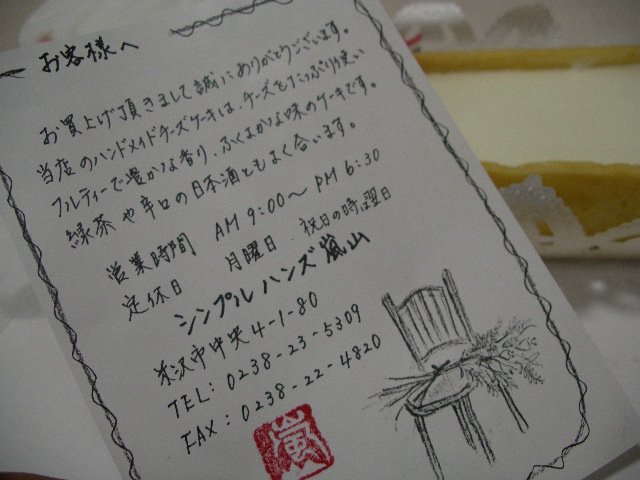 お客様へ
お買上げ頂きまして誠にありがとうございます。
当店のハンドメイドチーズケーキは、チーズをたっぷり使い
フルティーで豊かな香り、ふくよかな味のケーキです。
緑茶や辛口の日本酒ともよく合います。
営業時間 AM 9:00〜 PM 6:30
定休日 月曜日 祝日の時は曜日
シンプルハンズ嵐山
米沢市中央4-1-80
TEL: 0238-23-5309
FAX: 0238-22-4820
嵐